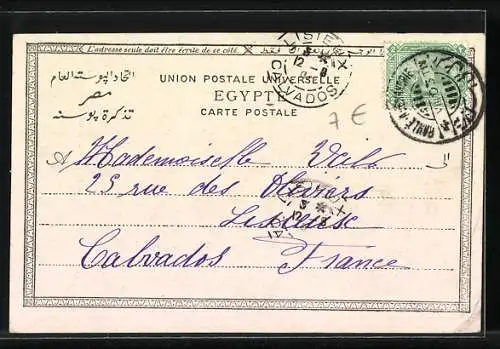 L'adresse seule doit être écrite de ce côté.
اتحاد البوسته العام
مصر
تذكرة بوسته
UNION POSTALE UNIVERSELLE
EGYPTE
CARTE POSTALE
LISIEUX
12-8
CALVADOS
7 €
A Mademoiselle Vail الى
25 rue des Oliviers
Lisieux
Calvados France